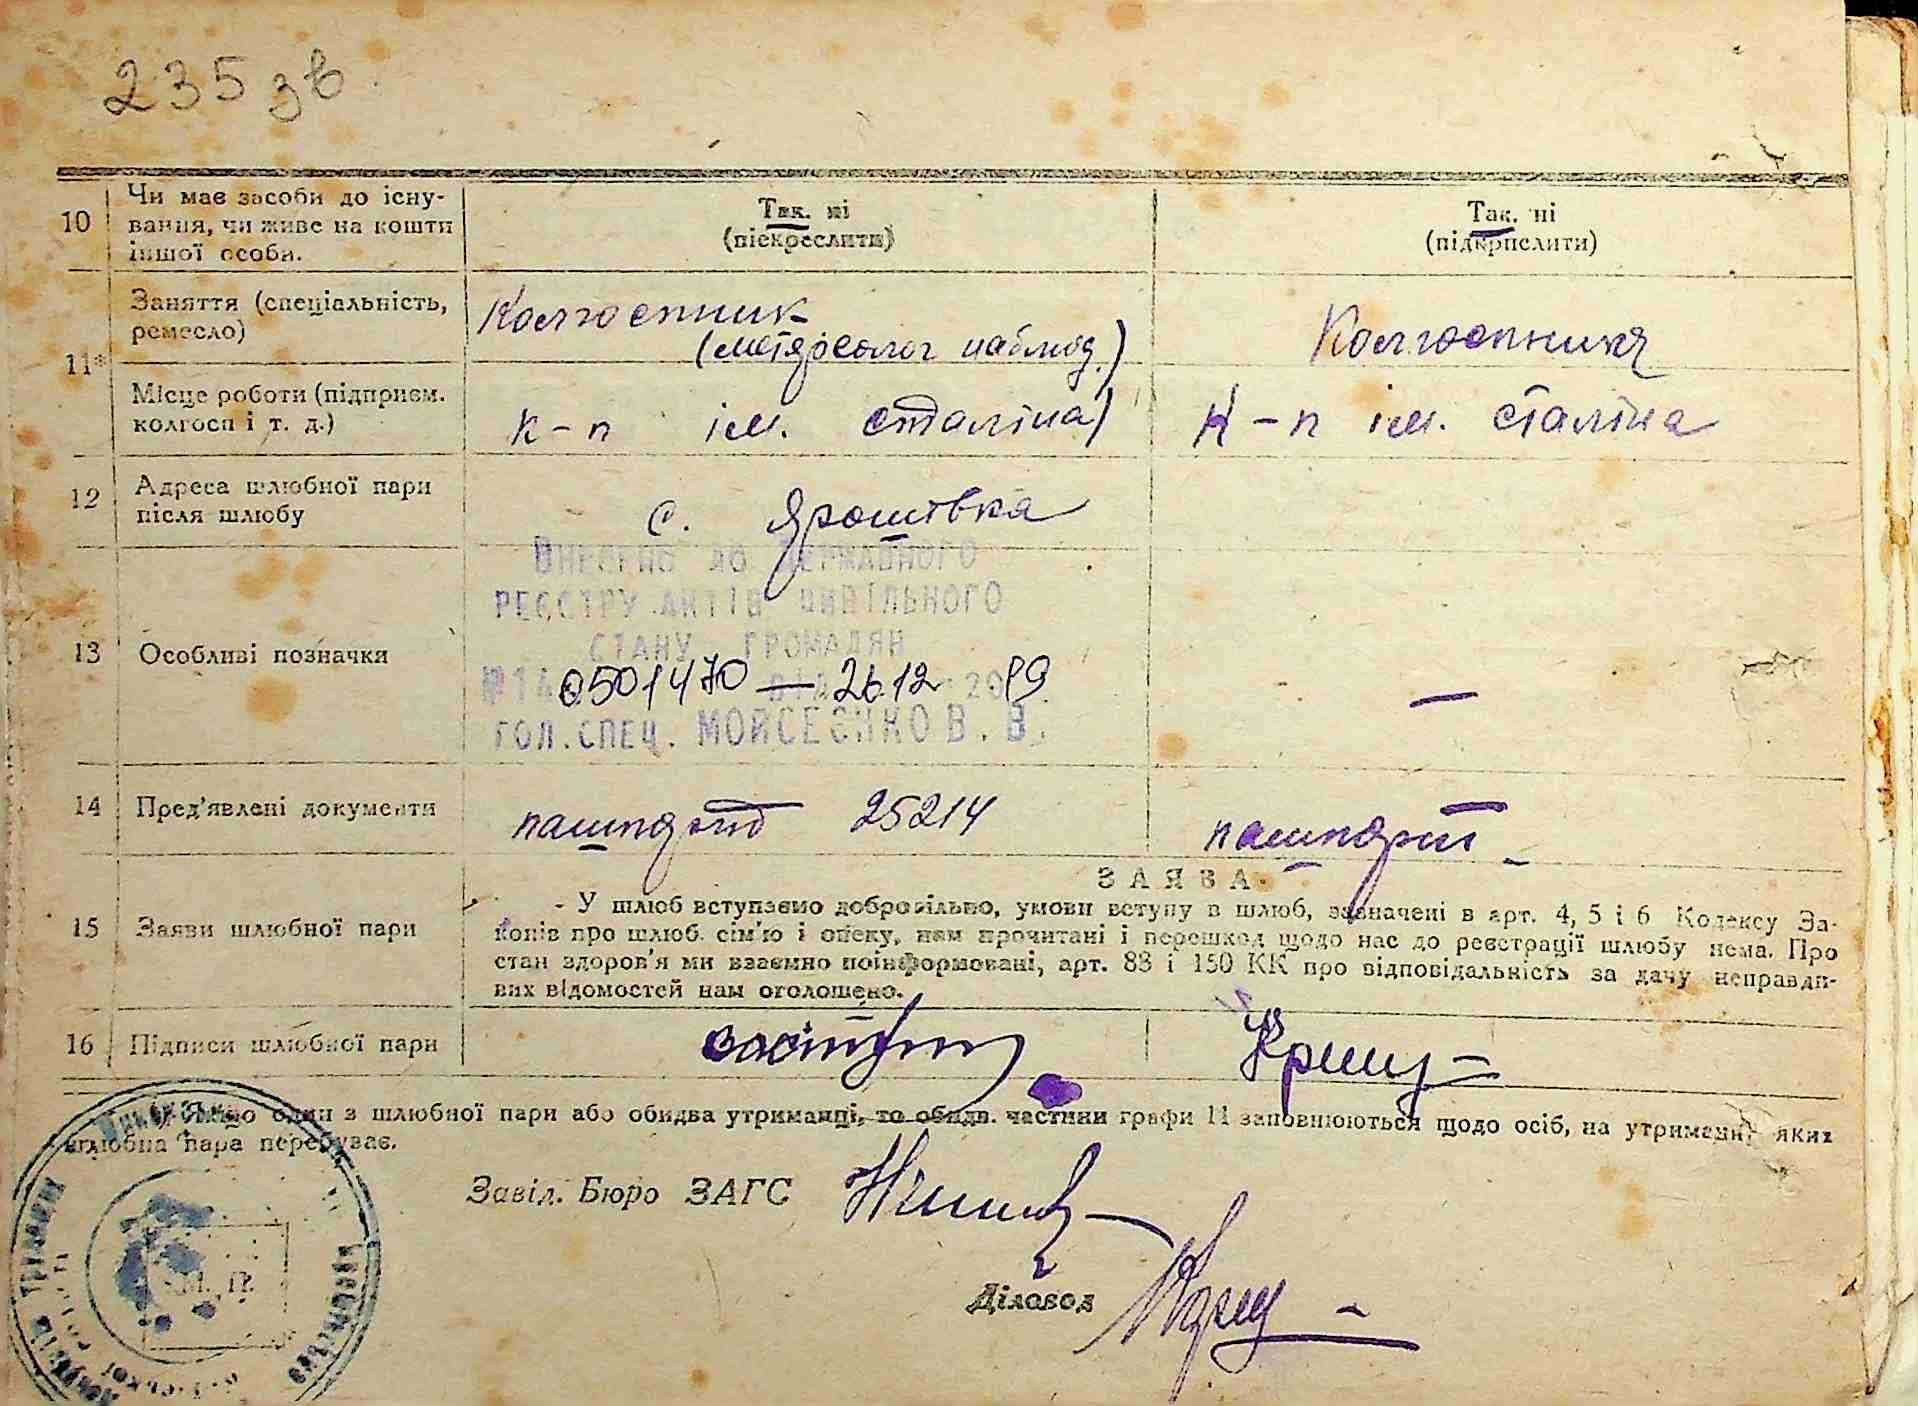 235 зв.
10 Чи має засоби до існу-
вання, чи живе на кошти
іншої особи.
Так. ні
(підкреслити)
Так. ні
(підкрислити)
11*
Заняття (спеціальність,
ремесло)
Колгоспник
(метереолог наблюд.)
Колгоспниця
Місце роботи (підприєм.
колгосп і т. д.)
к-п ім. сталіна)
к-п ім. сталіна
12 Адреса шлюбної пари
після шлюбу
с. Ярошівка
13 Особливі позначки
Внесено до державного
реєстру актів цивільного
стану громадян
0501470 — 26.12 2019
гол. спец. Мойсеєнко В. В.
—
14 Пред'явлені документи
пашпорт 25214
пашпорт
15 Заяви шлюбної пари
ЗАЯВА
У шлюб вступаємо добровільно, умови вступу в шлюб, зазначені в арт. 4, 5 і 6 Кодексу За-
конів про шлюб. сім'ю і опеку, нам прочитані і перешкод щодо нас до реєстрації шлюбу нема. Про
стан здоров'я ми взаємно поінформовані, арт. 83 і 150 КК про відповідальність за дачу неправди-
вих відомостей нам оголошено.
16 Підписи шлюбної пари
Якщо один з шлюбної пари або обидва утриманці, то обидв. частини графи 11 заповнюються щодо осіб, на утриманні яких
шлюбна пара перебуває.
Завід. Бюро ЗАГС
Діловод
М. П.